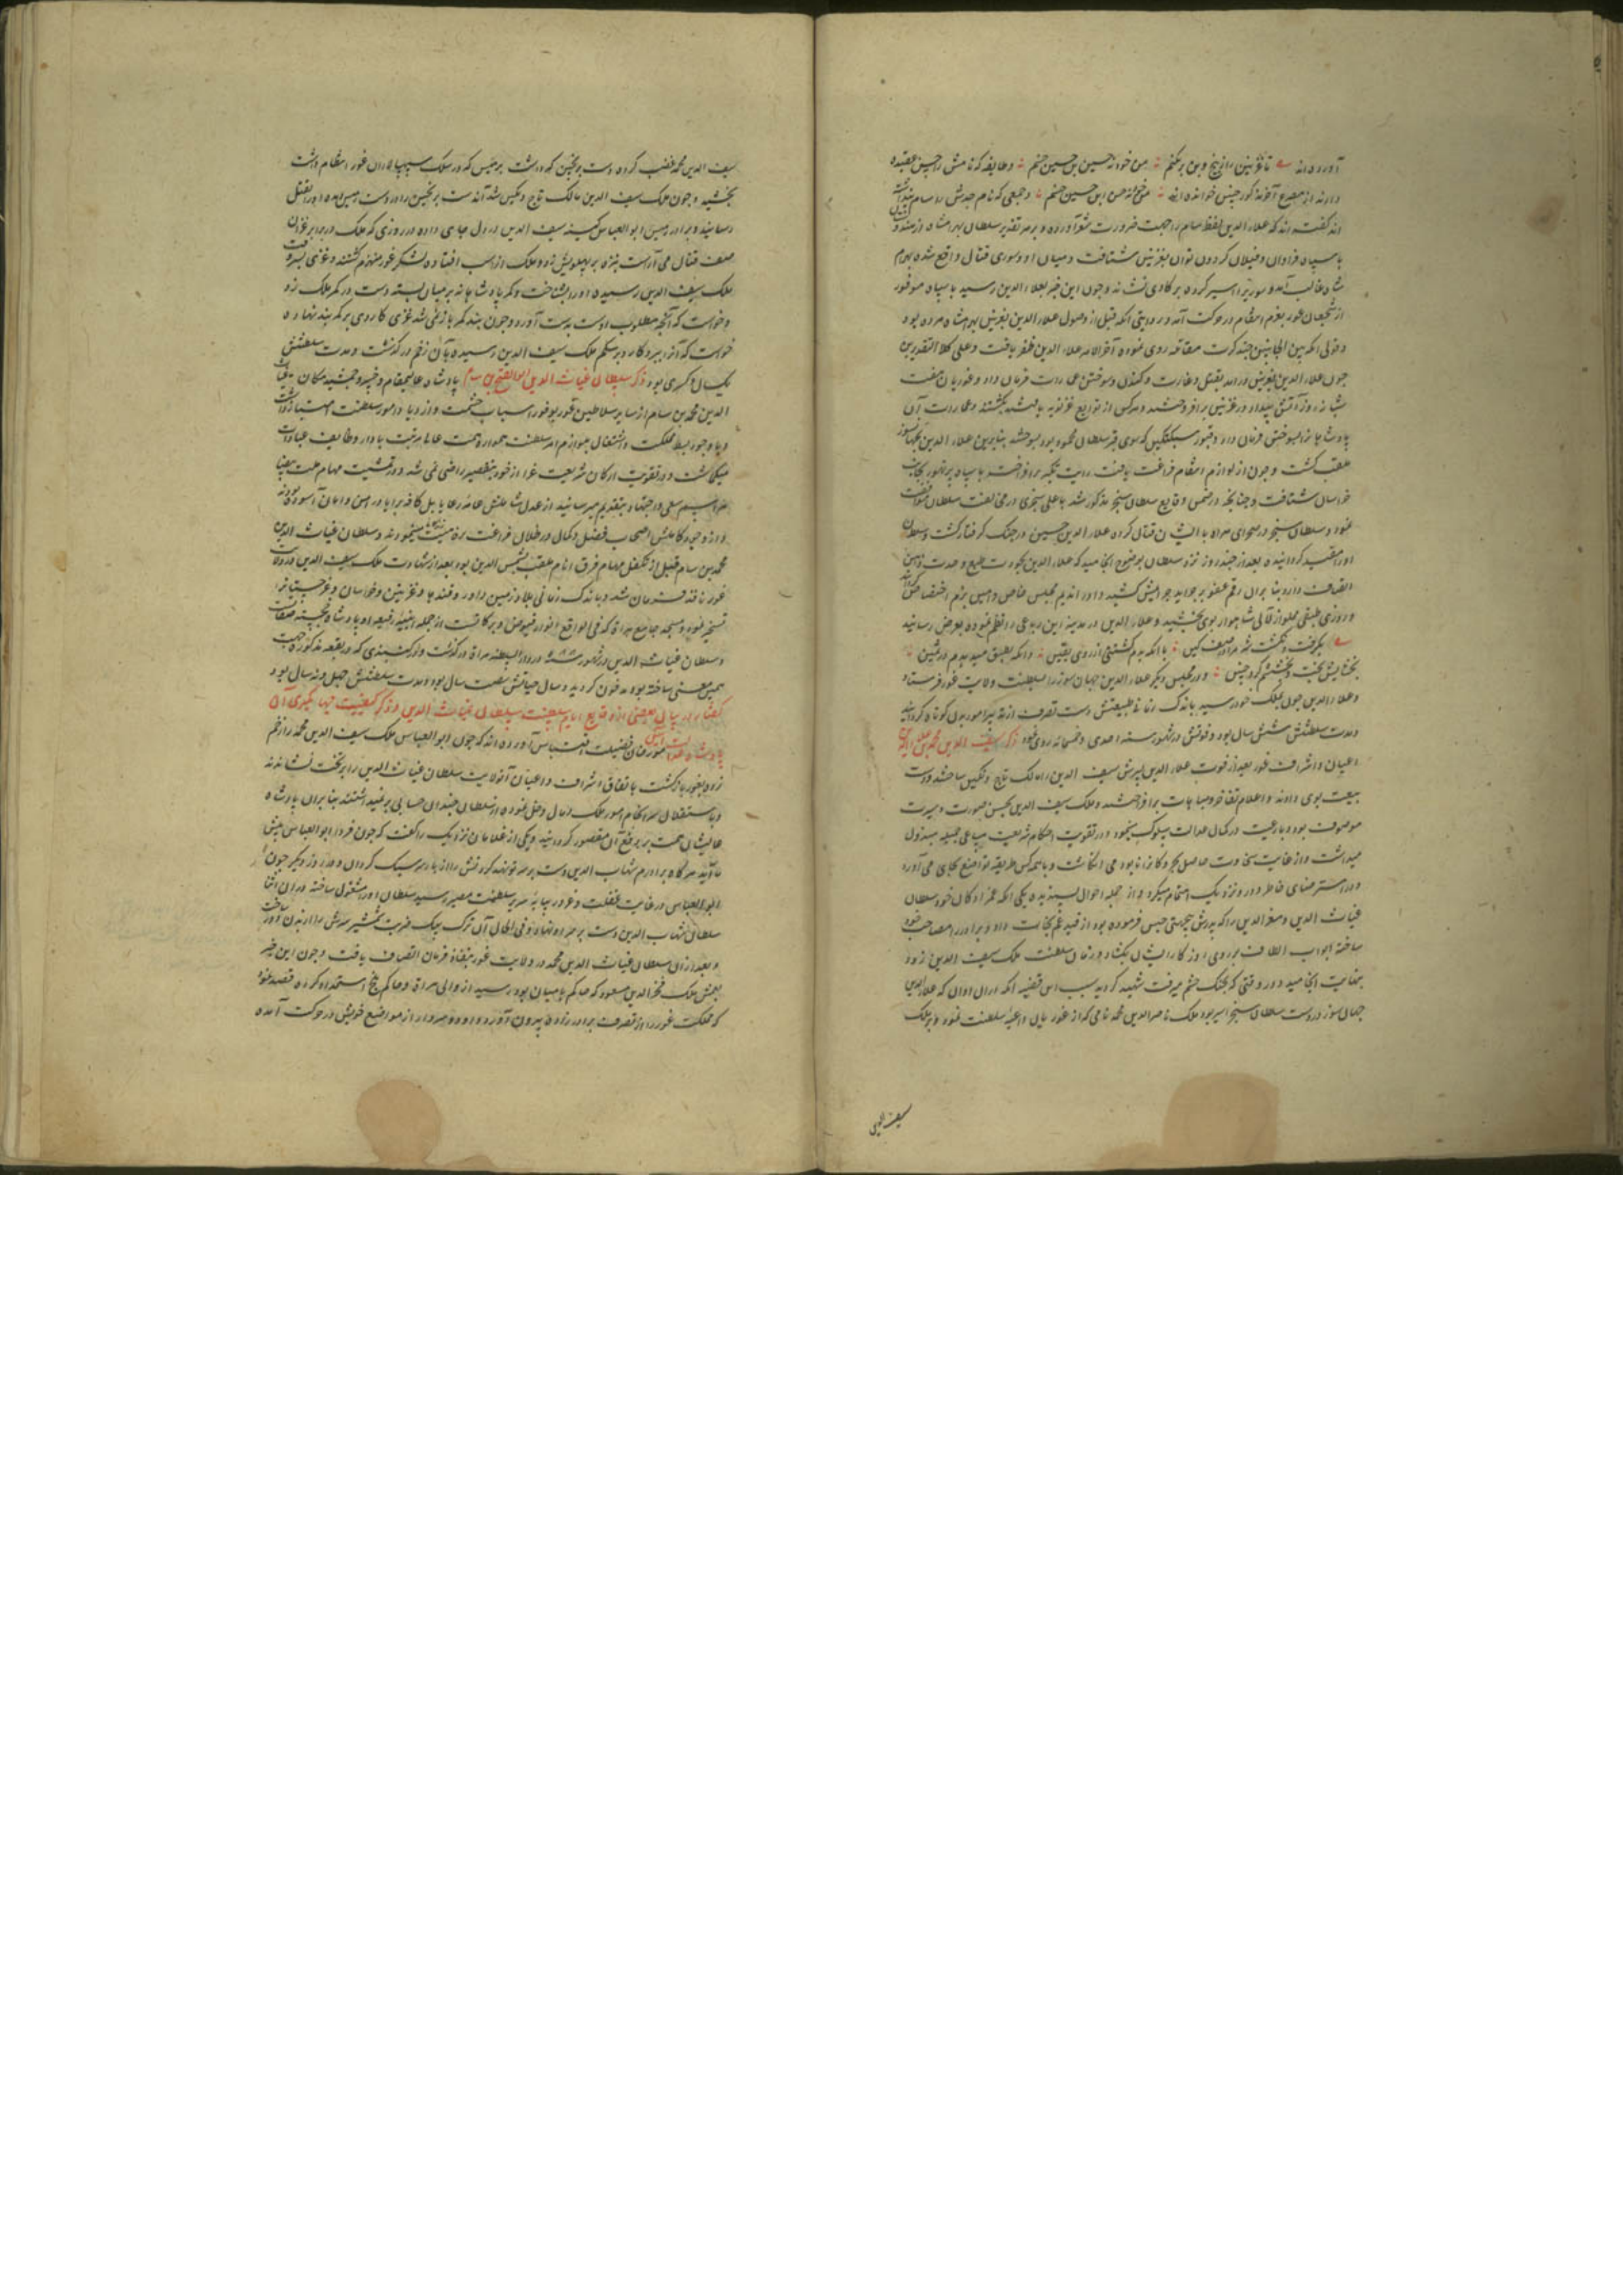 آورده‌اند تا غزنین را از بیخ و بن برنکنم من خود نه حسین بن حسین حسنم و طایفه که نامش را حسن عقیده
دارند از مصرع آخر مذکور چنین خوانده‌اند من خود نه حسن ابن حسین حسنم و جمعی که نام جدش را سام
اند گفته اند که علاء الدین لفظ سام را جهت ضرورت شعر آورده و بر هر تقدیر سلطان بهرامشاه از هندوستان
با سپاه فراوان و فیلان گردون توان بغزنین شتافت و میان او و سوری قتال واقع شده بهرام
شاه غالب آمد و سوری را اسیر کرده بر گاوی نشاند و چون این خبر بعلاء الدین رسید با سپاه موفور
از شجعان غور بعزم انتقام در حرکت آمد و روایتی آنکه قبل از وصول علاء الدین بغزنین بهرامشاه مرده بود
و قولی آنکه بین الجانبین چند کرت مقاتله روی نموده آخر الامر علاء الدین ظفر یافت و علی کلا التقدیرین
چون علاء الدین بغزنین درآمد بقتل و غارت و کندن و سوختن عمارات فرمان داد و غوریان هفت
شبانه روز آتش بیداد در غزنین برافروختند و هرکس از توابع غزنویه یافتند بکشتند و عمارات آن
پادشاهانرا بسوختن فرمان داد و قبور سبکتکین که سوی قبر سلطان محمود بود بسوختند بنابرین علاء الدین بجهانسوز
ملقب گشت و چون از لوازم انتقام فراغت یافت رایت تکبر برافراخته با سپاه پر تهور بجانب
خراسان شتافت و چنانچه در ضمن وقایع سلطان سنجر مذکور شد با علی سنجری در مخالفت سلطان موافقت
نمود و سلطان سنجر در صحرای هراة با ایشان قتال کرده علاء الدین حسین در جنگ گرفتار گشت و سلطان
او را مقید گردانیده بعد از چند روز نزد سلطان بوضوح انجامید که علاء الدین بجودت طبع و حدت ذهن
اتصاف دارد بنابر آن رقم عفو بر جراید جرایمش کشید و او را ندیم مجلس خاص و انیس بزم اختصاص گردانید
و روزی طبقی مملو از لآلی شاهوار بوی بخشید و علاء الدین در بدیهه این رباعی را نظم نموده بعرض رسانید
بگرفت و نکشت شه مرا در صف کین با آنکه بدم کشتنی از روی یقین وانکه بطبق میدهدم در ثمین
بخشایش و بخشش کرد چنین و در مجلس دیگر علاء الدین جهانسوز را سلطنت ولایت غور فرستاد
و علاء الدین چون بملک خود رسید باندک زمانی طبیعتش دست تصرف از تدبیر امور بدن کوتاه گردانید
و مدت سلطنتش شش سال بود و فوتش در شهور سنه احدی و خمسمائه روی نمود ذکر سیف الدین محمد بن علاء الدین
اعیان و اشراف غور بعد از فوت علاء الدین پسرش سیف الدین را مالک تاج و نگین ساختند و دست
بیعت بوی دادند و اعلام تفاخر و مباهات برافراختند و ملک سیف الدین بحسن صورت و سیرت
موصوف بود و با رعیت در کمال عدالت سلوک مینمود و در تقویت احکام شریعت مساعی جمیله مبذول
میداشت و از غایت سخاوت حاصل بحر و کان را نابود می انگاشت و با همه کس طریقه تواضع بجای می آورد
و در استرضای خاطر دور و نزدیک اهتمام میکرد و از جمله احوال پسندیده یکی آنکه عمزادگان خود سلطان
غیاث الدین و معز الدین را که پدرش بیجهتی حبس فرموده بود از قید غم نجات داد و برادر را مصاحب خود
ساخته ابواب الطاف بر روی روزگار ایشان بگشاد و زمان سلطنت ملک سیف الدین زود
بنهایت انجامید و در وقتی که بجنگ حشم میرفت شهید گردید سبب این قضیه آنکه در آن اوان که علاء الدین
جهانسوز در دست سلطان سنجر اسیر بود ملک ناصر الدین محمد نامی که از غوریان داعیه سلطنت نمود و بر ملک
سیف الدین
سیف الدین محمد غضب کرده دست برنجن که داشت برجیس که در سلک سپهسالاران غور انتظام داشت
بخشید و چون ملک سیف الدین مالک تاج و نگین شد آن دست برنجین را در دست رمیس دیده او را بقتل
رسانید و برادر رمیس ابو العباس کینه سیف الدین در دل جای داده در روزی که ملک در برابر غزان
صف قتال می آراست نیزه بر پهلویش زد و ملک از اسب افتاده لشکر غور منهزم گشتند و غزی بسر وقت
ملک سیف الدین رسیده او را بشناخت و کمر پادشاهانه بر میان بسته دست در کمر ملک زد
و خواست که آنچه مطلوب اوست بدست آورد و چون بند کمر باز نمی شد غزی کاردی بر کمر بند نهاده
خواست که آنرا ببرد کارد بر شکم ملک سیف الدین رسیده بآن زخم درگذشت و مدت سلطنتش
یک سال و کسری بود ذکر سلطان غیاث الدین ابو الفتح بن سام پادشاه عالیمقام و خسرو جمشید مکان غیاث
الدین محمد بن سام از سایر سلاطین غور بوفور اسباب حشمت و ازدیاد امور سلطنت امتیاز داشت
و با وجود ضبط مملکت و اشتغال بلوازم امر سلطنت همواره همت عالی مرتبت باداء وظایف عبادات
میگماشت و در تقویت ارکان شریعت غرا از خود بتقصیر راضی نمی شد و در تمشیت مهام ملت بیضا
مراسم سعی و اجتهاد بتقدیم میرسانید از عدل شاملش عامه رعایا بل کافه برایا در امن و امان آسوده بودند
و از وجود کاملش اصحاب فضل و کمال در ظلال فراغت برفاهیت میغنودند و سلطان غیاث الدین
محمد بن سام قبل از تکفل مهام فرق انام ملقب بشمس الدین بود بعد از شهادت ملک سیف الدین در ولایت
غور نافذ فرمان شد و باندک زمانی بلاد زمین داور و قندهار و غزنین و خراسان و غرجستانرا
تسخیر نمود و مسجد جامع هراة که فی الواقع انور و فیوض و برکاتست از جمله ابنیه رفیعه او پادشاه خجسته صفات
و سلطان غیاث الدین در شهور سنه در دار السلطنه هراة درگذشت و در گنبدی که در بقعه مذکوره جهت
همین معنی ساخته بود مدفون گردید و سال حیاتش شصت سال بود و مدت سلطنتش چهل و نه سال بود
گفتار در بیان بعضی از وقایع ایام سلطنت سلطان غیاث الدین و ذکر کیفیت جهانگیری آن
پادشاه عدالت آیین مورخان فضیلت اقتباس آورده اند که چون ابو العباس ملک سیف الدین محمد را زخم
زد و بغور بازگشت باتفاق اشراف و اعیان آنولایت سلطان غیاث الدین را بر تخت نشاندند
و باستقلال سرانجام امور ملک و مال دخل نموده از سلطان چندان حسابی بر نمیداشتند بنابر آن پادشاه
عالیشان همت بر رفع آن مقصور گردانید و یکی از غلامان نزدیک را گفت که چون فردا ابو العباس پیش
ما آید هرگاه برادرم شهاب الدین دست بر سر تو نهد گردنش را از بار سر سبک گردان و در روز دیگر چون
ابو العباس در غایت غفلت و غرور بپایه سریر سلطنت مصیر رسید سلطان او را مشغول ساخته در آن اثنا
سلطان شهاب الدین دست بر سر او نهاد و فی الحال آن ترک بیک ضربت شمشیر سرش را از بدن دور ساخت
و بعد از آن سلطان غیاث الدین محمد در ولایت غور بنفاذ فرمان اتصاف یافت و چون این خبر
بعمش ملک فخر الدین مسعود که حاکم بامیان بود رسید از والی هراة و حاکم بلخ استمداد کرده قصد نمود
که مملکت غور را از تصرف برادرزاده بیرون آورد و او و هر دو از مواضع خویش در حرکت آمده